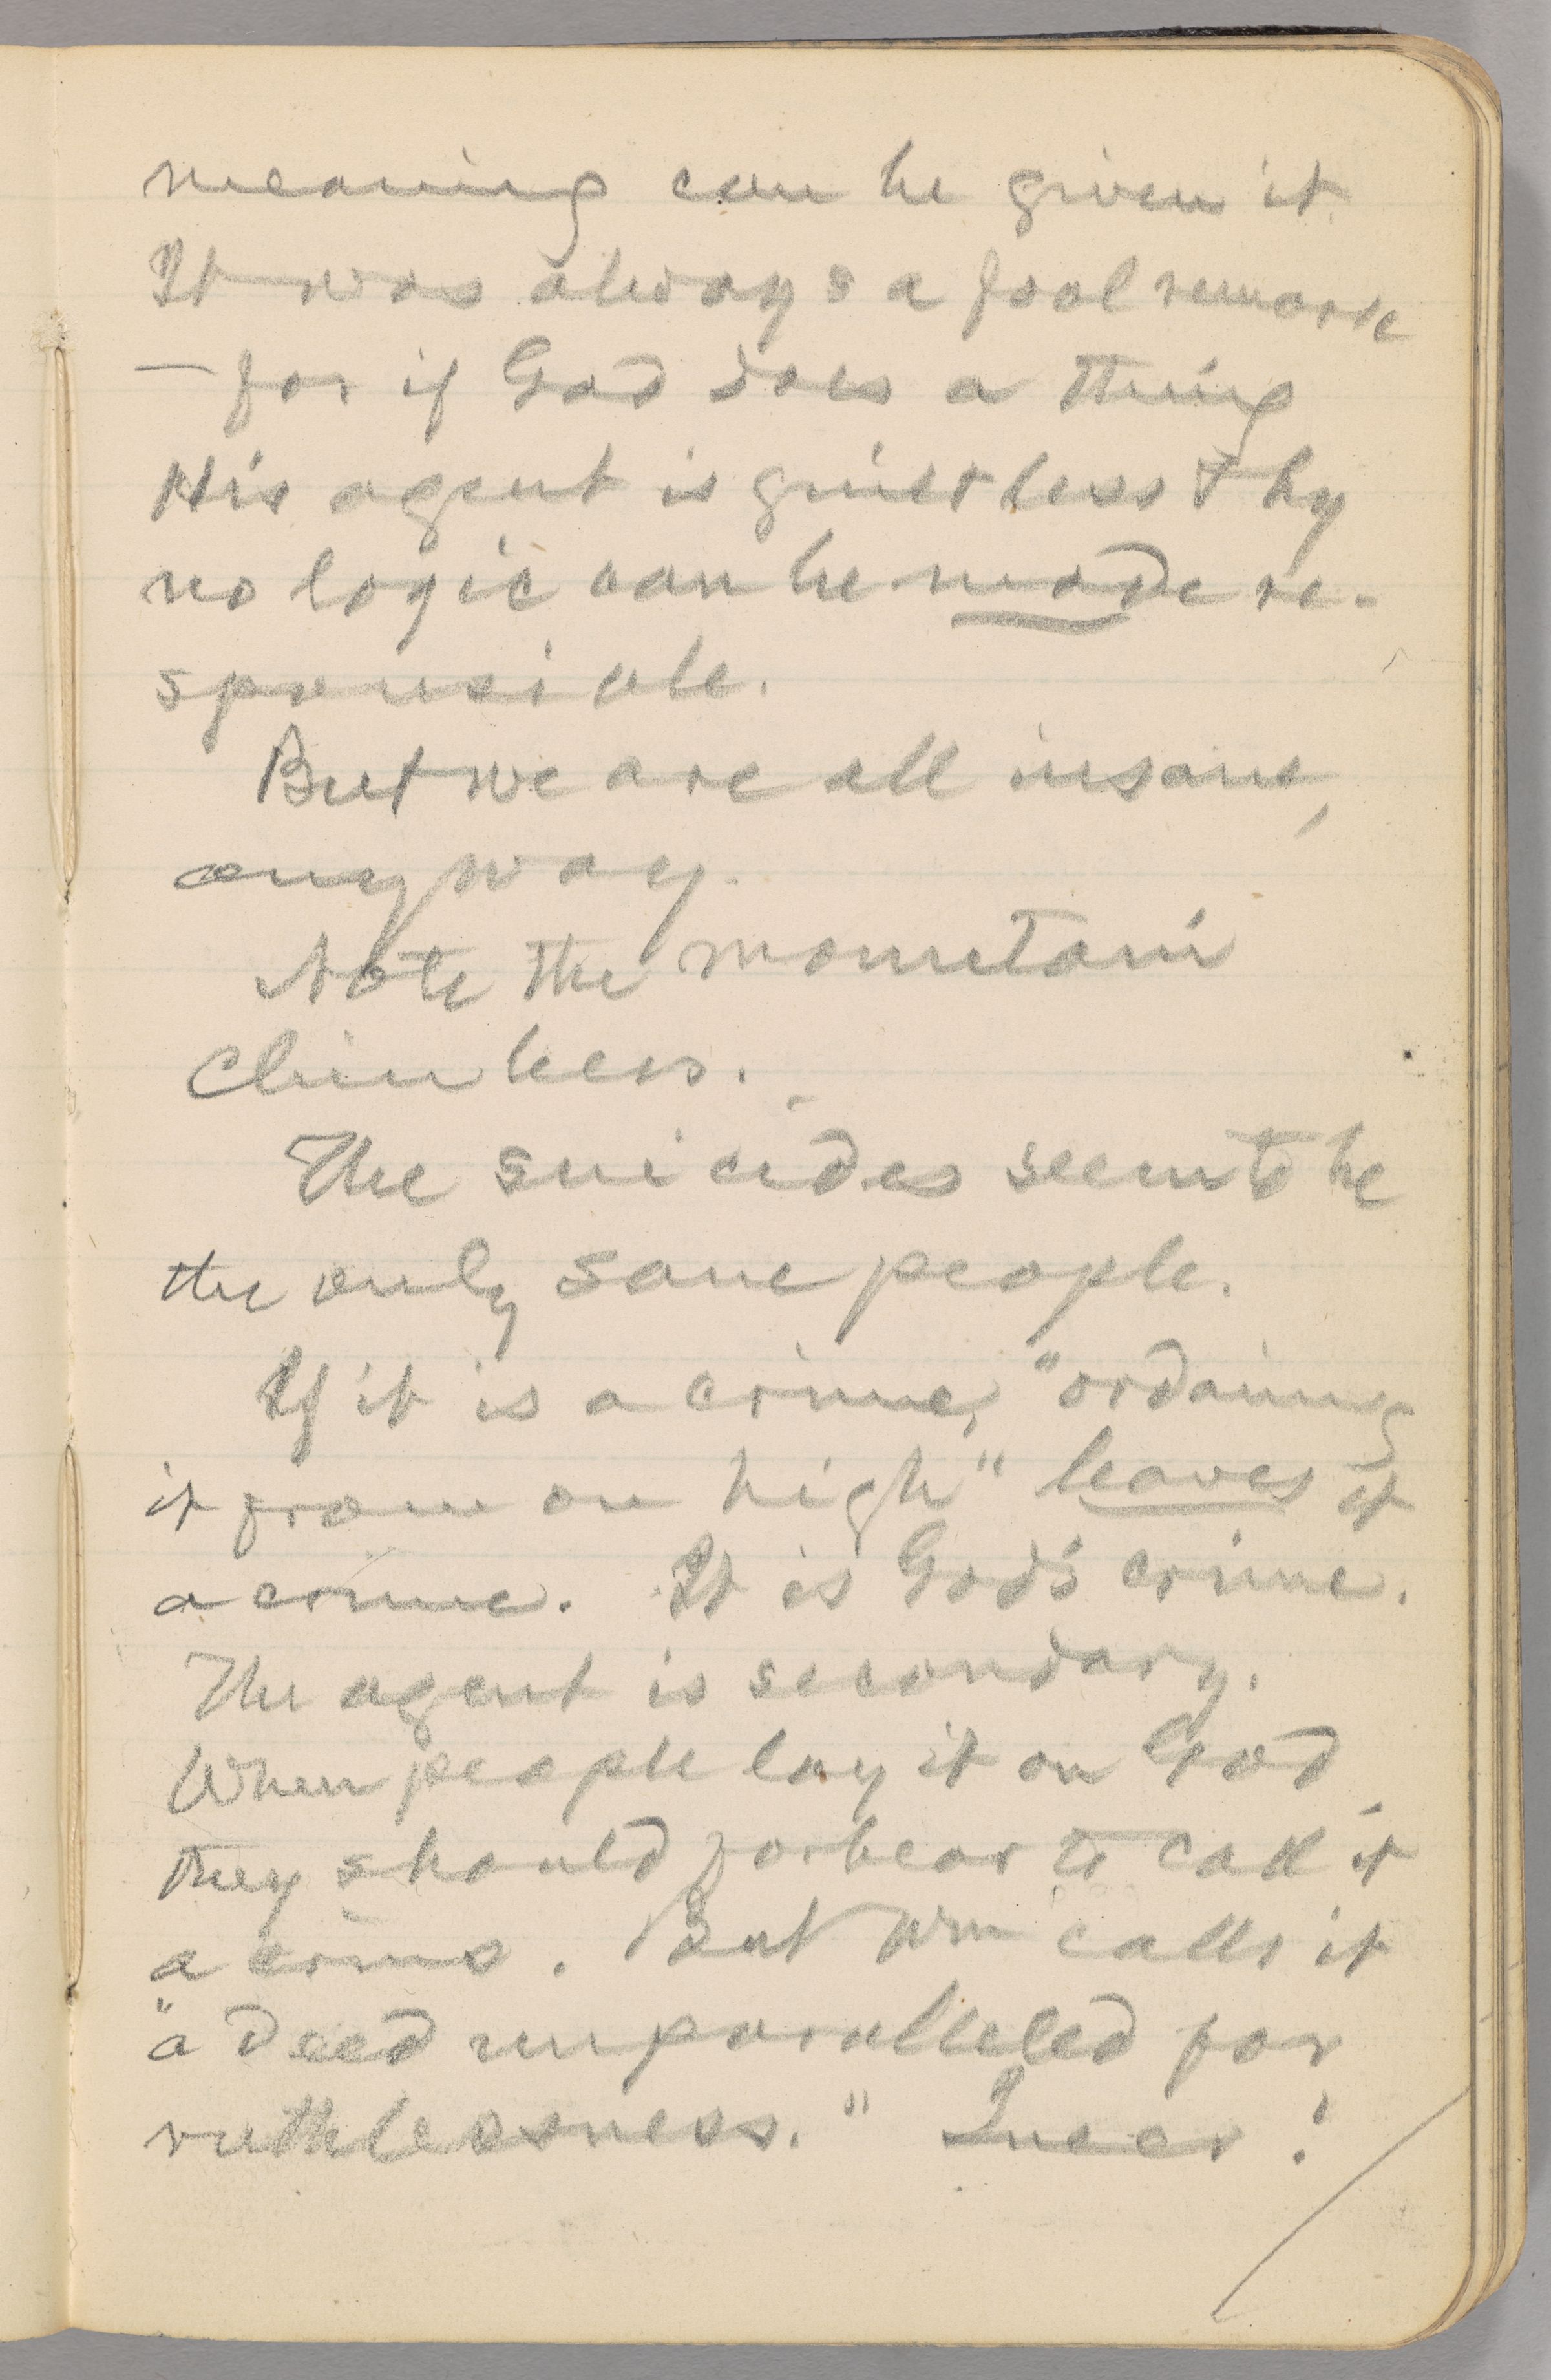 meaning can be given it.
It was always a fool remark
— for if God does a thing
His agent is guiltless & by
no logic can be made re-
sponsible.
But we are all insane,
anyway.
Note the mountain
climbers.
The suicides seem to be
the only sane people.
If it is a crime, "ordaining
it from on high" leaves it
a crime. It is God's crime.
The agent is secondary.
When people lay it on God
they should forbear to call it
a crime. But Wm calls it
"a deed unparalleled for
ruthlessness." Queer!